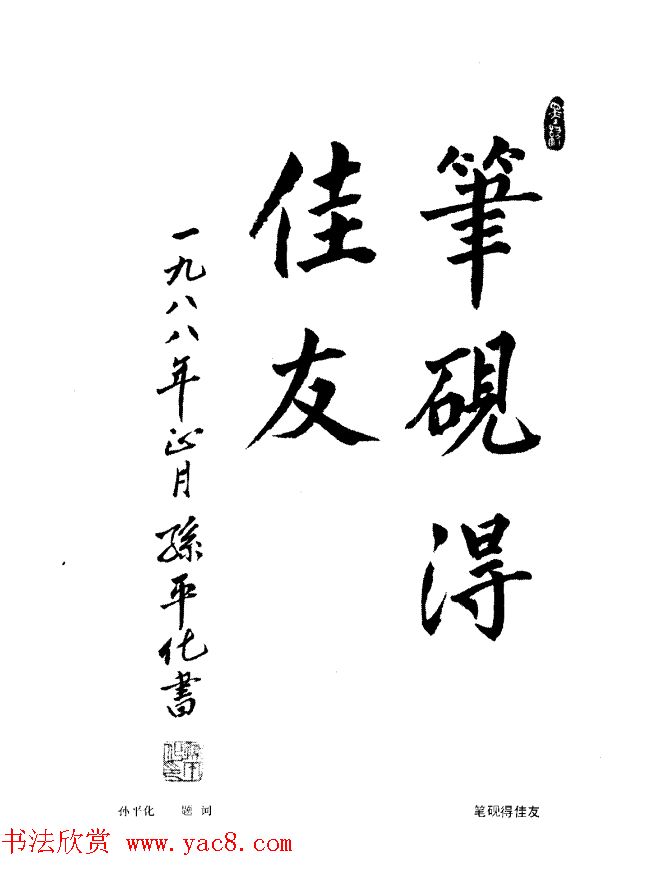 筆硯得
佳友
一九八八年正月 孫平化書
笔砚得佳友
孙平化 题词
书法欣赏 www.yac8.com